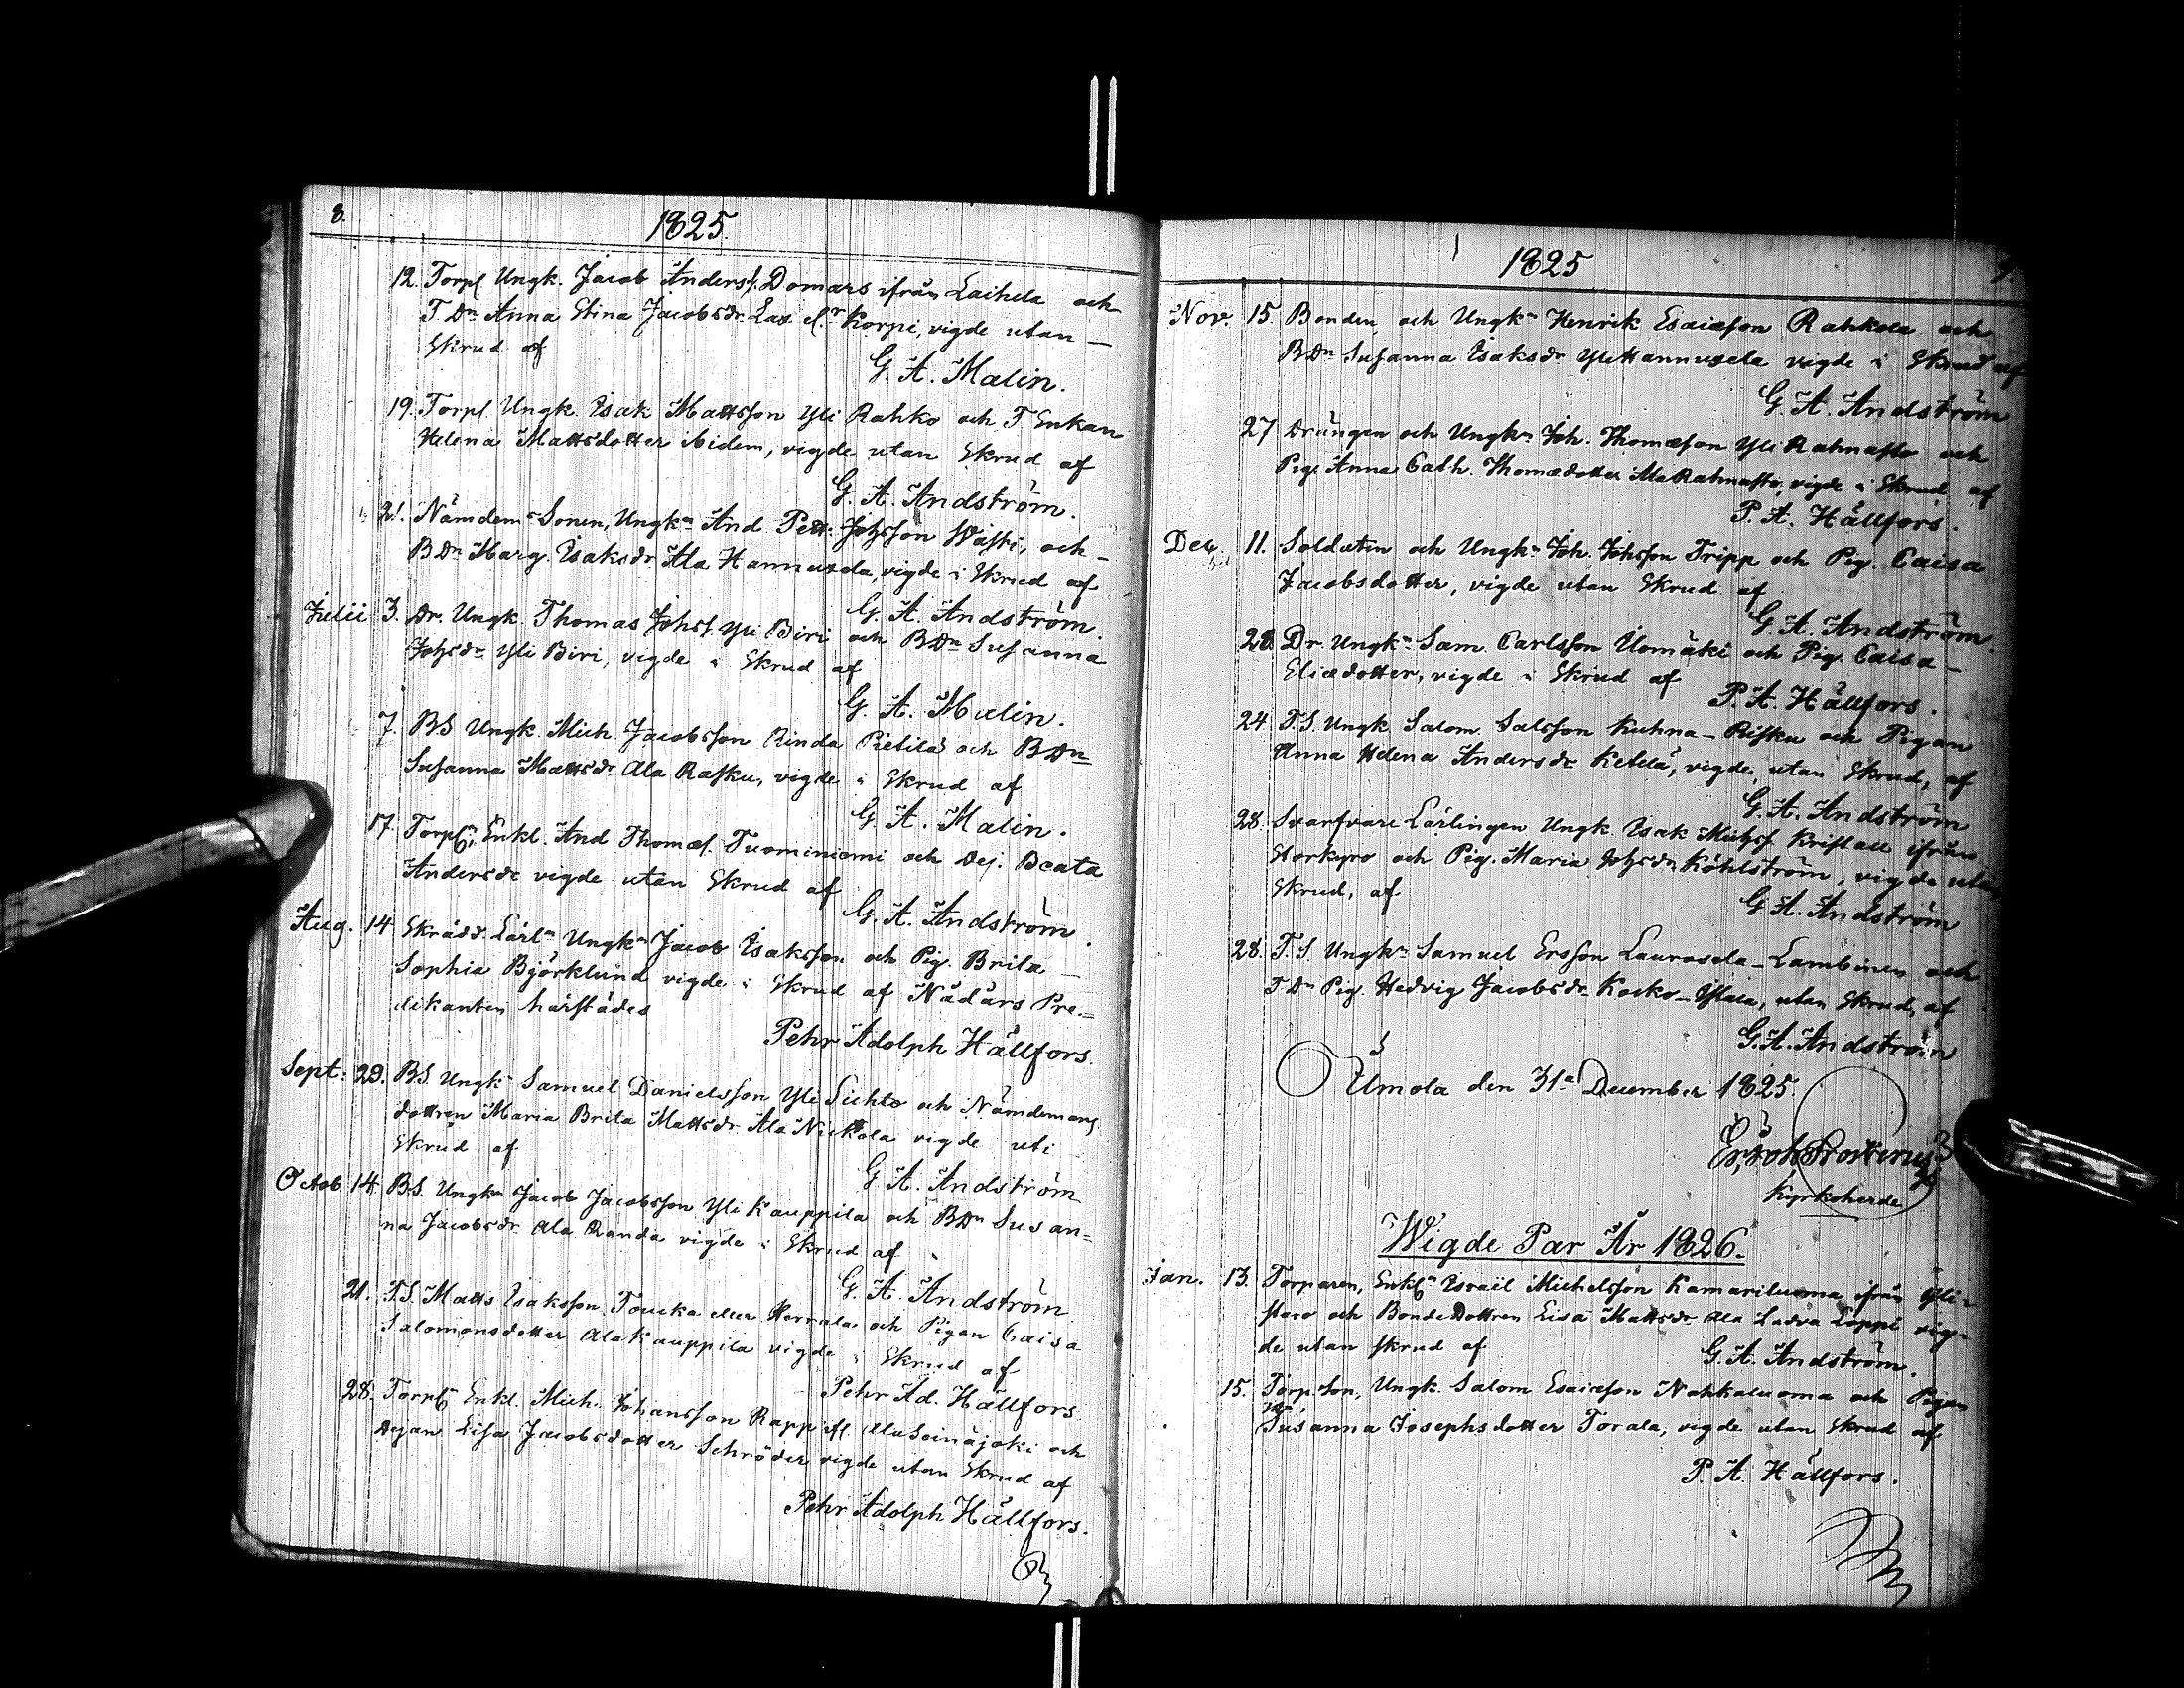 8.
1825.
12. Torpf Ungk. Jacob Andersf. Domars ifrån Laihela och
T Dn Anna Stina Jacobsdr. Las el.r Korpi, vigde utan
Skrud af
G. A. Malin.
19. Torpf. Ungk. Isak Mattsson Yli Rahko och T Enkan
Helena Mattsdotter ibidem, vigde utan Skrud af
G. A. Andström.
21. Nämdem. Sonen, Ungkn And. Pett. Johsson Wäski, och
BDn Marg. Isaksdr Ala Hannuxela, vigde i Skrud af
G. A. Andström.
Julii 3. Dr. Ungk. Thomas Johsf. Yli Biri och BDn Susanna
Johsdr Yli Biri, vigde i Skrud af
G. A. Malin.
7. BS Ungk. Mich. Jacobsson Rinda Pietilä och BDn
Susanna Mattsdr. Ala Rasku, vigde i Skrud af
G. A. Malin.
17. Torpn, Enkl. And. Thomæf. Tuominiemi och Dej. Beata
Andersdr vigde utan Skrud af
G. A. Andström.
Aug. 14. Skrädd. Lärln Ungkn Jacob Isaksson och Pig. Brita
Sophia Björklund vigde i Skrud af Nådårs Pre-
dikanten härstädes
Pehr Adolph Hällfors.
Sept. 29. BS. Ungkn Samuel Danielsson Yli Sihto och Nämdemans
dottren Maria Brita Mattsdr. Ala Nickola vigde uti
Skrud af
G. A. Andström
Octob. 14. BS. Ungkn Jacob Jacobsson Yli Kauppila och BDn Susan-
na Jacobsdr. Ala Randa vigde i Skrud af
G. A. Andström
21. T.S. Matts Isaksson Toucka eller Herrala och Pigan Caisa
Salomonsdotter Ala Kauppila vigde i Skrud af
Pehr Ad. Hällfors
28. Torpn Enkl. Mich. Johansson Rapp ifr. Ala Seinäjoki och
Dejan Lisa Jacobsdotter Schröder vigde utan Skrud af
Pehr Adolph Hällfors.
1825
Nov. 15. Bonden och Ungkn Henrik Esaiæson Rahkola och
BDn Susanna Isaksdr. Ylihannuxela vigde i Skrud af
G. A. Andström
27 Drängen och Ungkn Joh. Thomæson Yli Rahnasto och
Pig. Anna Cath. Thomædotter Ala Rahnasto, vigde i Skrud af
P. A. Hällfors.
Dec. 11. Soldaten och Ungkn Joh. Johsson Tripp och Pig. Caisa
Jacobsdotter, vigde utan Skrud af
G. A. Andström.
28. Dr. Ungkn Sam. Carlsson Uomäki och Pig. Caisa
Eliædotter, vigde i Skrud af
P. A. Hällfors.
24. T.S. Ungk. Salom. Salsson Kuhna-Risku och Pigan
Anna Helena Andersdr Ketelä, vigde utan Skrud, af
G. A. Andström
28. Svarfvare Lärlingen Ungk. Isak Michsf. Kristall ifrån
Storkyro och Pig. Maria Johsdr Köhlström, vigde utan
Skrud, af
G. A. Andström
28. T.S. Ungkn Samuel Ersson Laurosela-Lambinen och
T Dn Pig. Hedvig Jacobsdr. Kocko-Ylula, utan Skrud, af
G. A. Andström
Umola den 31a December 1825.
Kyrkoherde
Wigde Par År 1826.
Jan. 13. Torparen, Enkl. Israil Michelsson Kamariluoma ifrån Yli-
staro och BondeDottren Lisa Mattsdr Ala Ladva Loppi vig-
de utan skrud af
G. A. Andström.
15. Torp. Son, Ungk. Salom. Esaiæson Nahkaluoma och Pigan
Susanna Josephsdotter Torala, vigde utan Skrud af
P. A. Hällfors.